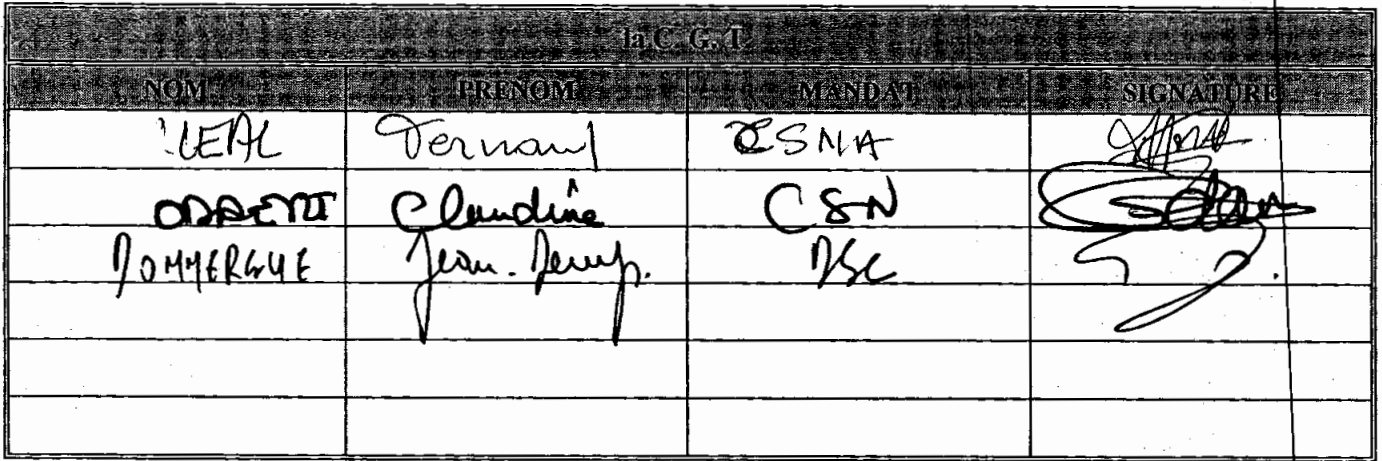 la C. G. T.
NOM PRENOM MANDAT SIGNATURE
LEAL Fernand CSNA
ODDENT Claudine CSN
DOMMERGUE Jean. DSC